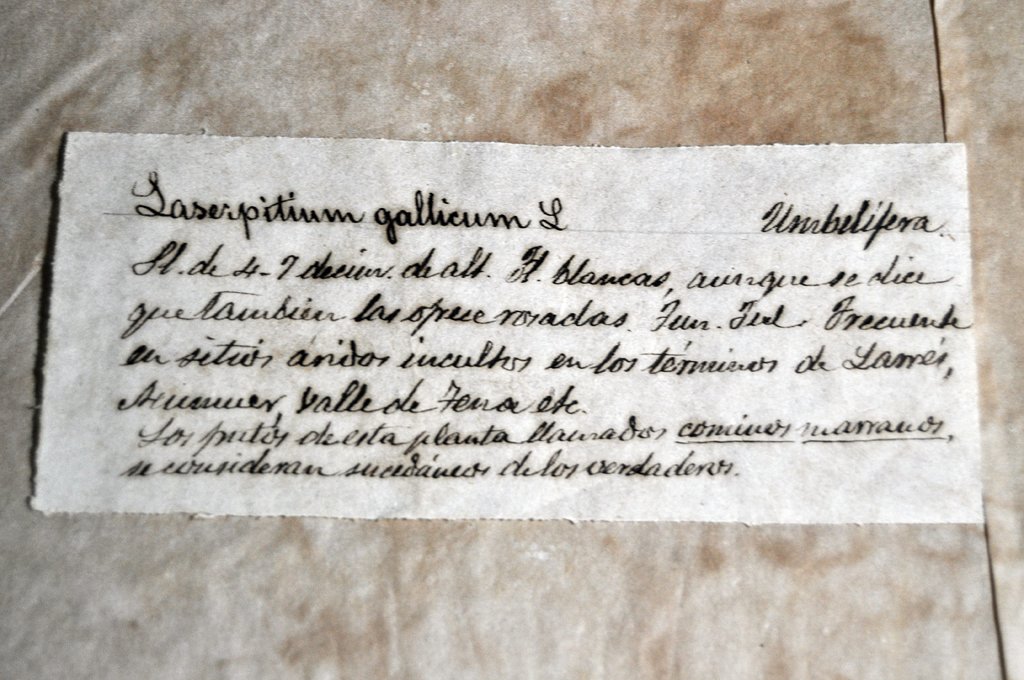 Laserpitium gallicum L Umbelífera.
Pl. de 4-7 decim. de alt. Fl. blancas, aunque se dice
que tambien las ofrece rosadas. Jun. Jul. Frecuente
en sitios áridos incultos en los términos de Larrés,
valle de Tena etc.
Los frutos de esta planta llamados cominos marranos,
se consideran sucedáneos de los verdaderos.